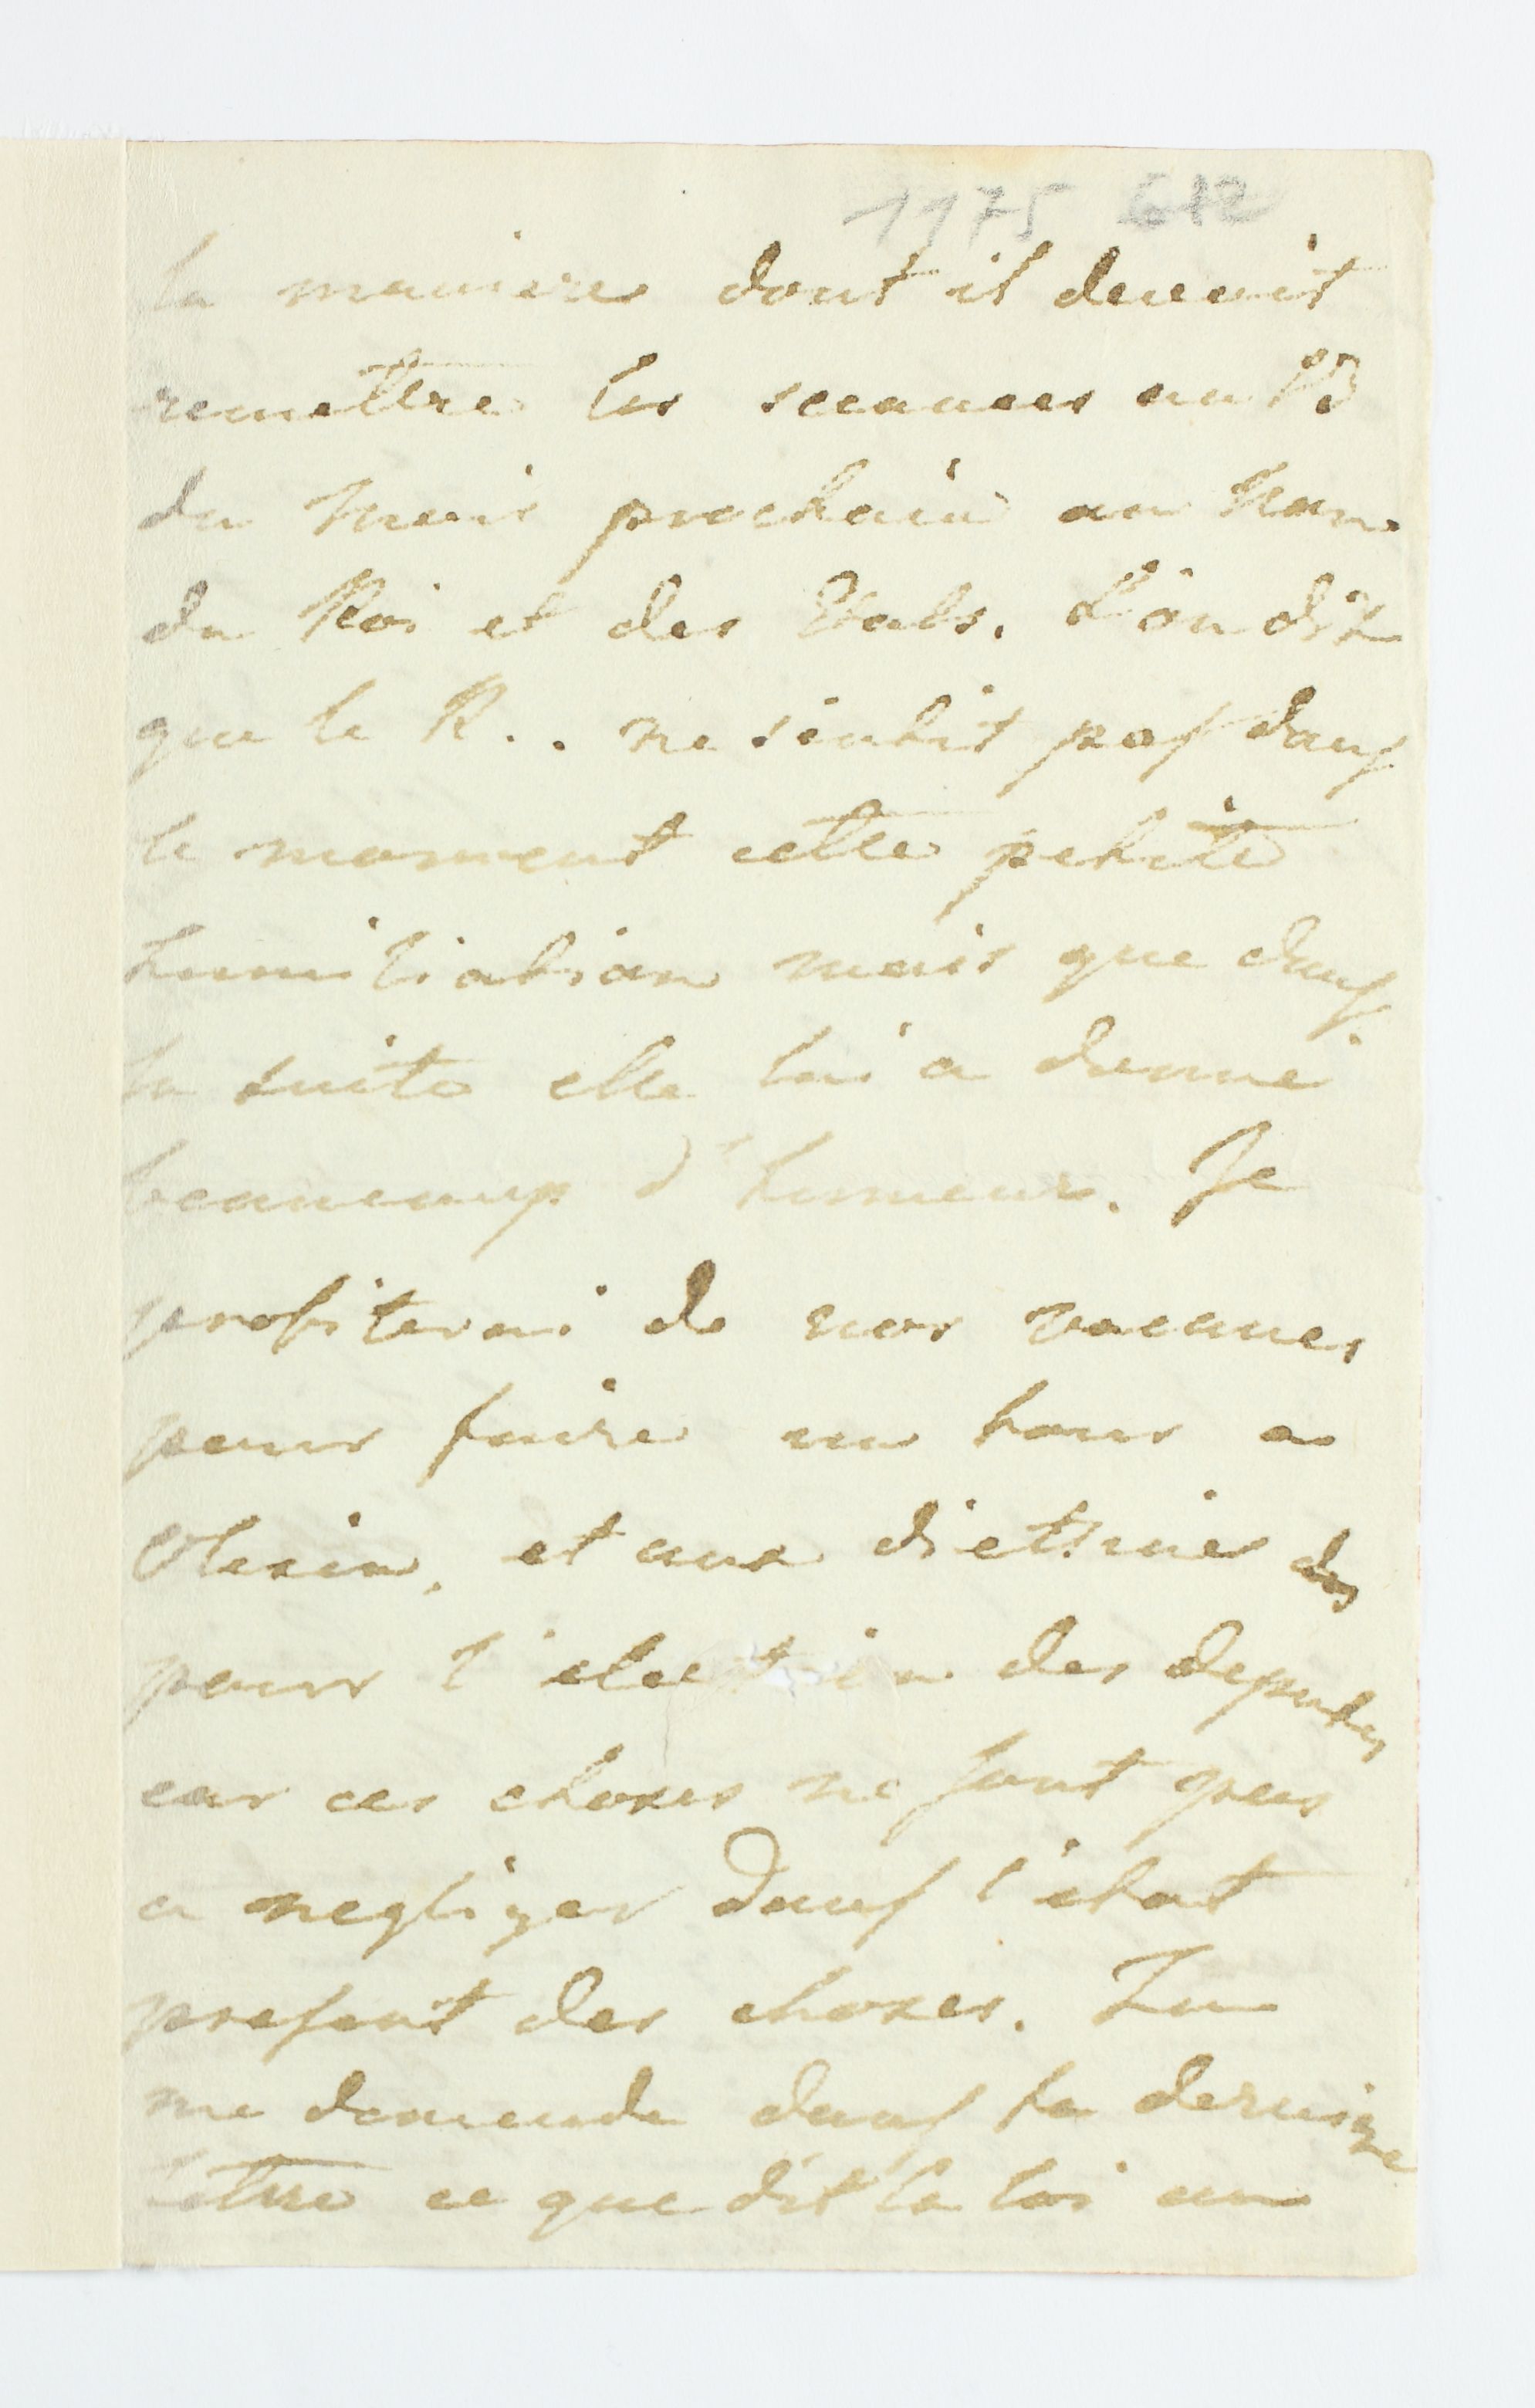 1175 612
la maniere dont il devoit
remettre les sceances au 15
du mois prochain au nom
du Roi et des Etats. L'on dit
que le R.. ne sentit pas dans
le moment cette petite
humiliation mais que dans
la suite elle lui a donné
beaucoup d'humeur. Je
profiterai de nos vacances
pour faire un tour a
Olesin, et aux dietines
pour l'election des deputes
car ces choses ne sont pas
a negliger dans l'etat
present des choses. Tu
me demande dans ta derniere
lettre ce que dit la loi au